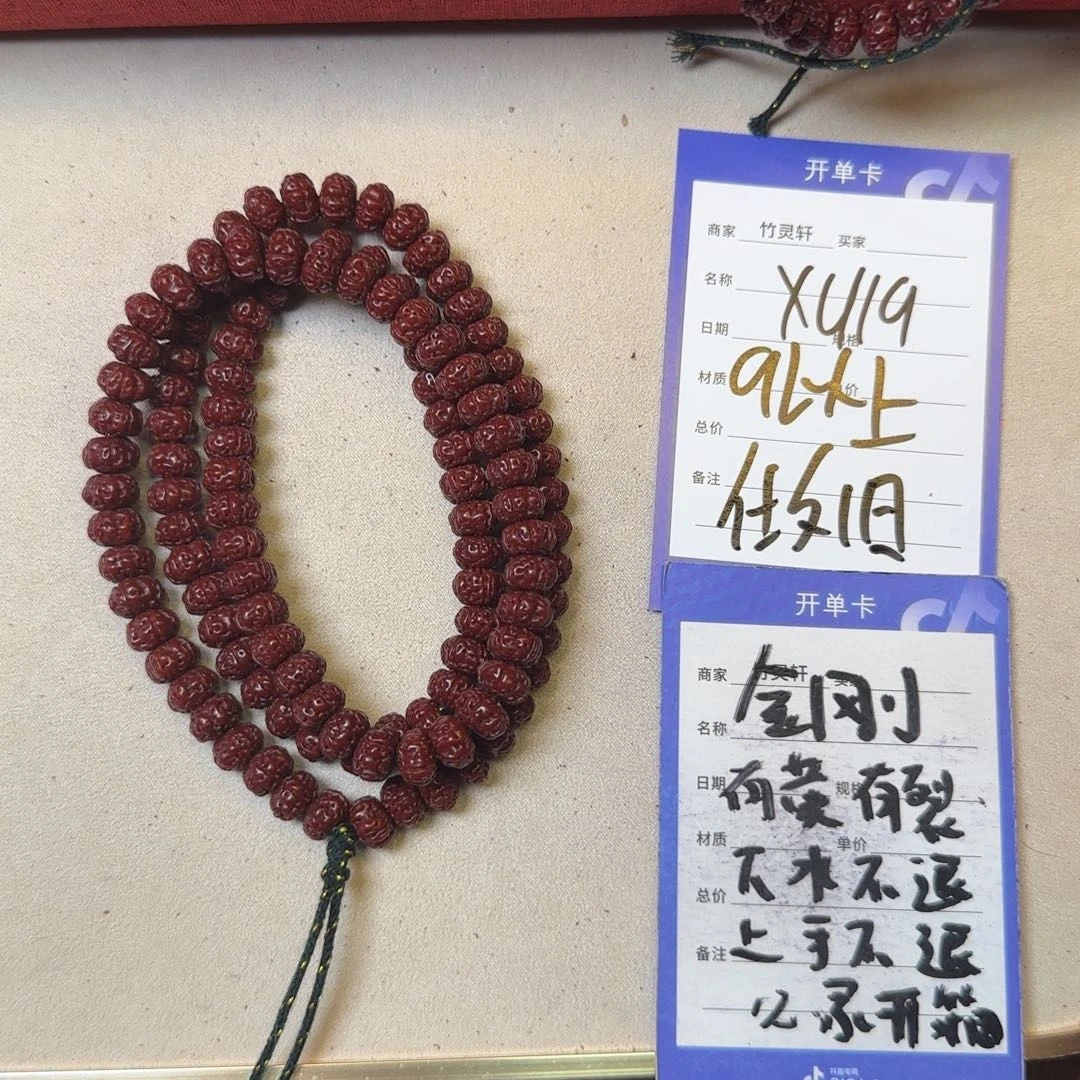 开单卡
商家 竹灵轩 买家
名称 XU19
日期 规格
材质 单价
总价
备注 做旧
开单卡
商家 竹灵轩 金刚
名称
日期 有黄 规格 有裂
材质 单价
总价 下水不退
备注 上手不退
必录开箱
抖音电商